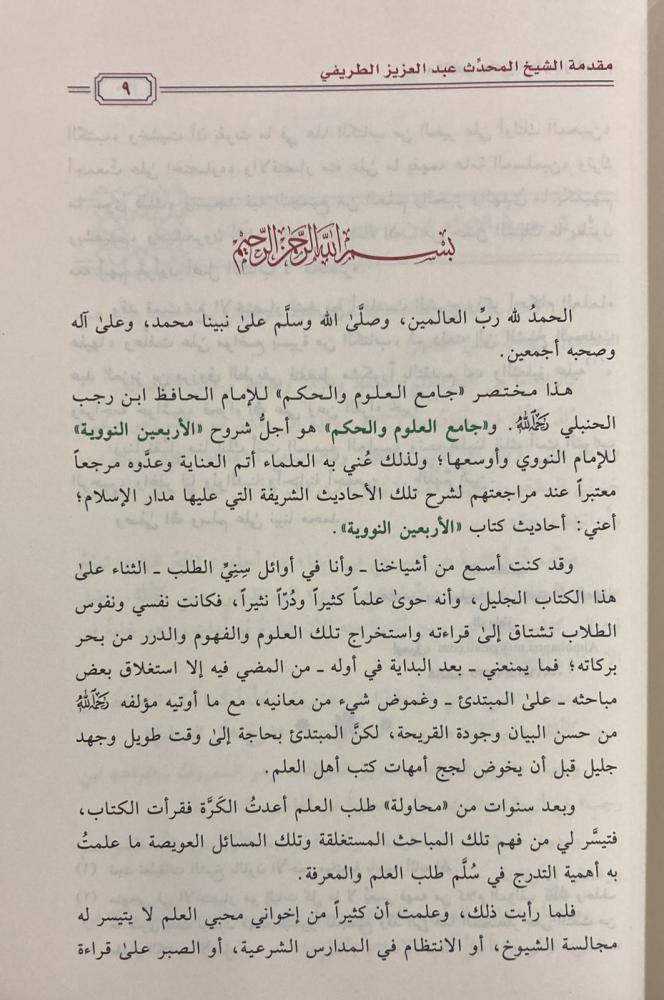 مقدمة الشيخ المحدِّث عبد العزيز الطريفي
٩
بسم الله الرحمن الرحيم
الحمدُ لله ربِّ العالمين، وصلَّىٰ الله وسلَّم علىٰ نبينا محمد، وعلىٰ آله
وصحبه أجمعين.
هذا مختصر «جامع العلوم والحكم» للإمام الحافظ ابن رجب
الحنبلي رَحِمَهُ ٱللَّهُ. و«جامع العلوم والحكم» هو أجلُّ شروح «الأربعين النووية»
للإمام النووي وأوسعها؛ ولذلك عُني به العلماء أتم العناية وعدَّوه مرجعاً
معتبراً عند مراجعتهم لشرح تلك الأحاديث الشريفة التي عليها مدار الإسلام؛
أعني: أحاديث كتاب «الأربعين النووية».
وقد كنت أسمع من أشياخنا ـ وأنا في أوائل سِنِيِّ الطلب ـ الثناء علىٰ
هذا الكتاب الجليل، وأنه حوىٰ علماً كثيراً ودُرّاً نثيراً، فكانت نفسي ونفوس
الطلاب تشتاق إلىٰ قراءته واستخراج تلك العلوم والفهوم والدرر من بحر
بركاته؛ فما يمنعني ـ بعد البداية في أوله ـ من المضي فيه إلا استغلاق بعض
مباحثه ـ علىٰ المبتدئ ـ وغموض شيء من معانيه، مع ما أوتيه مؤلفه رَحِمَهُ ٱللَّهُ
من حسن البيان وجودة القريحة، لكنَّ المبتدئ بحاجة إلىٰ وقت طويل وجهد
جليل قبل أن يخوض لجج أمهات كتب أهل العلم.
وبعد سنوات من «محاولة» طلب العلم أعدتُ الكَرَّة فقرأت الكتاب،
فتيسَّر لي من فهم تلك المباحث المستغلقة وتلك المسائل العويصة ما علمتُ
به أهمية التدرج في سُلَّم طلب العلم والمعرفة.
فلما رأيت ذلك، وعلمت أن كثيراً من إخواني محبي العلم لا يتيسر له
مجالسة الشيوخ، أو الانتظام في المدارس الشرعية، أو الصبر علىٰ قراءة